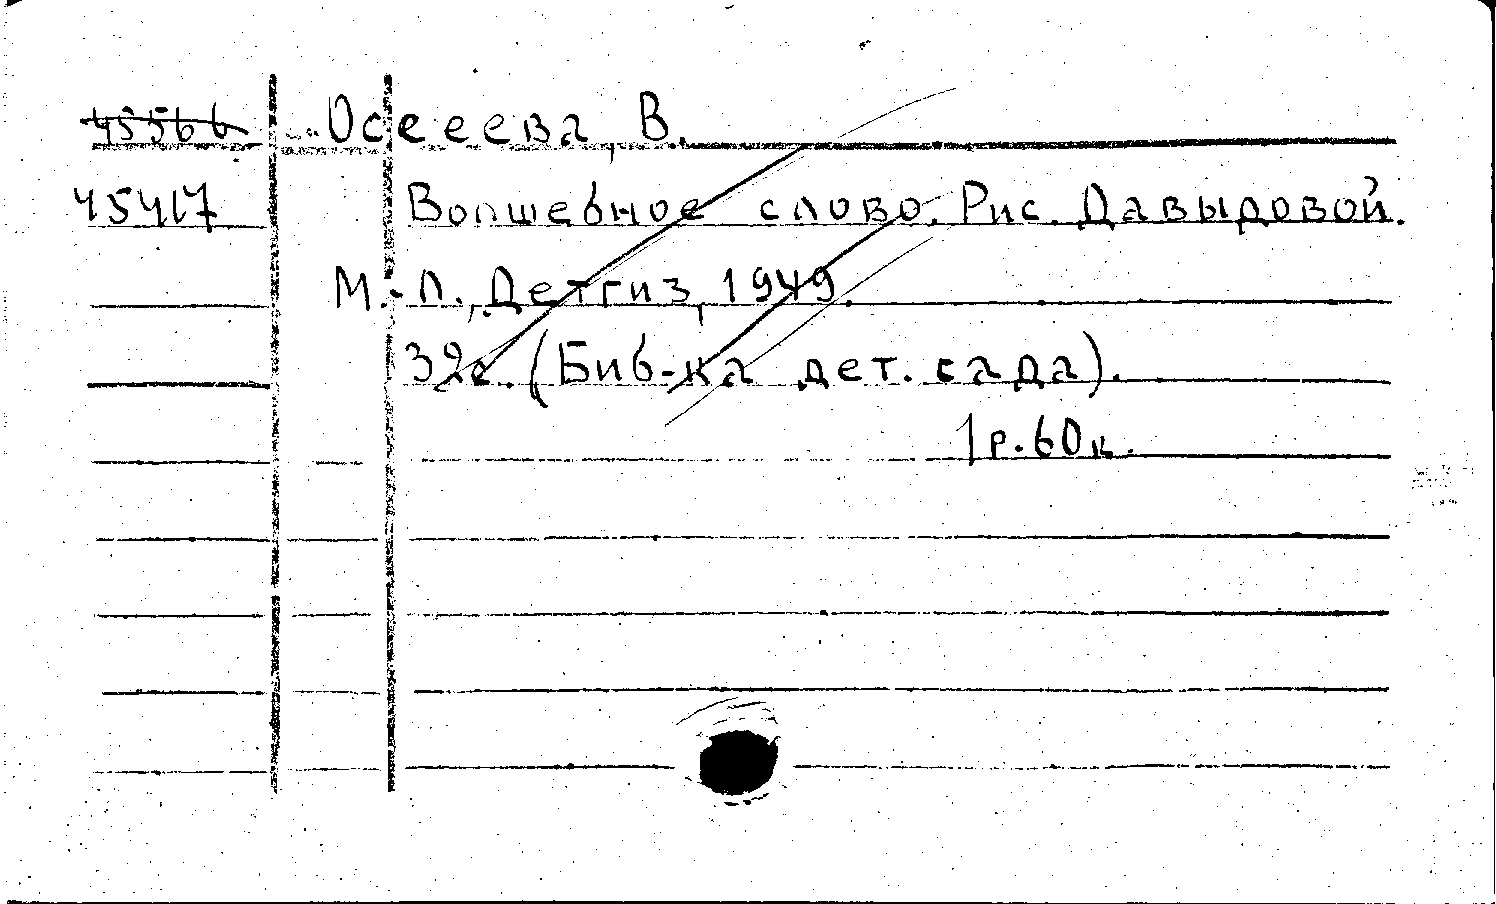 45566 Осееева, В.
45417 Волшебное слово. Рис. Давыдовой.
М.-Л., Детгиз, 1949.
32с. (Биб-ка дет. сада).
1р.60к.